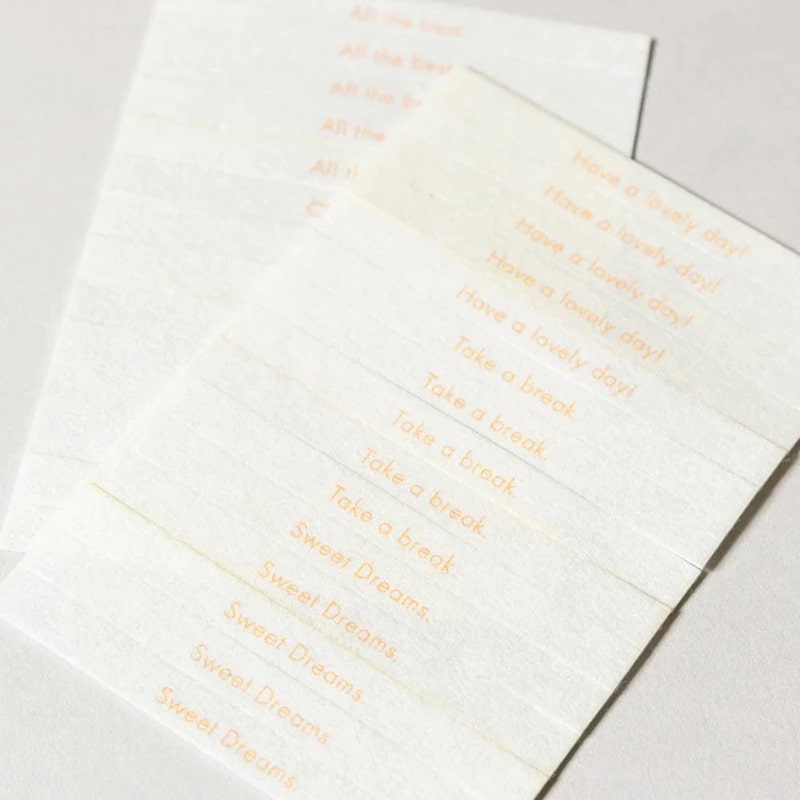 All the best
All the best
All the
All the
All
Have a lovely day!
Have a lovely day!
Have a lovely day!
Have a lovely day!
Have a lovely day!
Take a break.
Take a break.
Take a break.
Take a break.
Take a break.
Sweet Dreams.
Sweet Dreams.
Sweet Dreams.
Sweet Dreams.
Sweet Dreams.